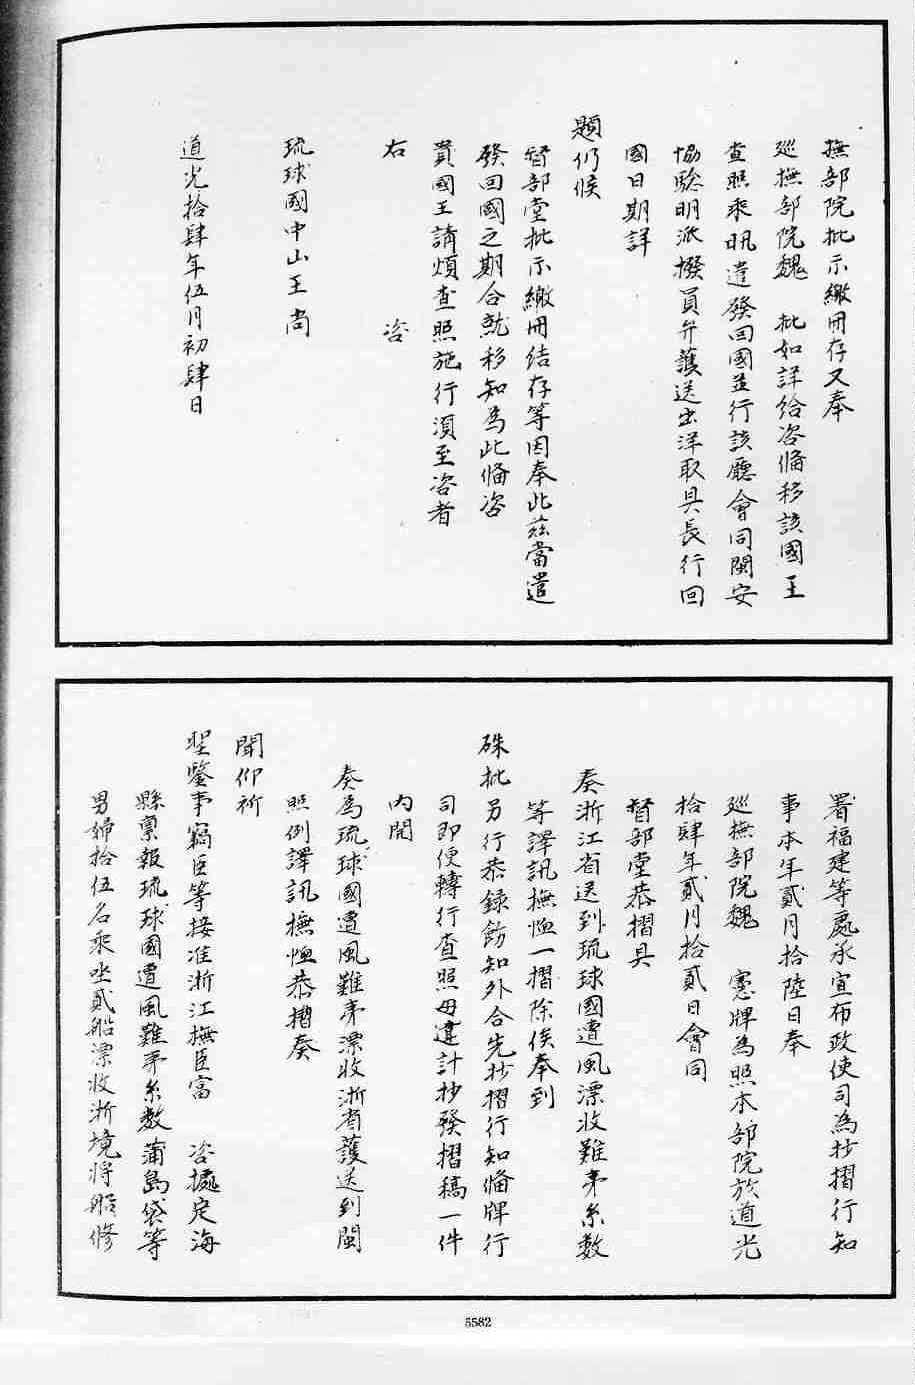 撫部院批示繳冊存又奉
巡撫部院魏　批如詳給咨俻移該國王
查照乘汛遣發回國並行該廳會同閩安
協驗明派撥員弁護送出洋取具長行回
國日期詳
題仍候
督部堂批示繳冊結存等因奉此茲當遣
發回國之期合就移知為此俻咨
貴國王請煩查照施行湏至咨者
右　　　　咨
琉球國中山王尚
道光拾肆年伍月初肆日
署福建等處承宣布政使司為抄摺行知
事本年貳月拾陸日奉
巡撫部院魏　憲牌為照本部院於道光
拾肆年貳月拾貳日會同
督部堂恭摺具
奏浙江省送到琉球國遭風漂收難夷糸數
等譯訊撫恤一摺除俟奉到
硃批另行恭録飭知外合先抄摺行知俻牌行
司即便轉行查照毋違計抄發摺稿一件
內開
奏為琉球國遭風難夷漂收浙省護送到閩
照例譯訊撫恤恭摺奏
聞仰祈
聖鑒事竊臣等接准浙江撫臣富　咨據定海
縣禀報琉球國遭風難夷糸數蒲島袋等
男婦拾伍名乘坐貳船漂收浙境將船修
5582